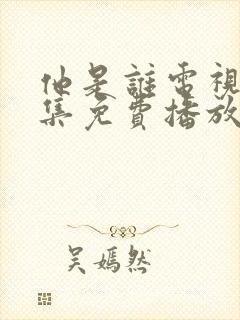 他是誰電視
集免費播放
吳嫣然